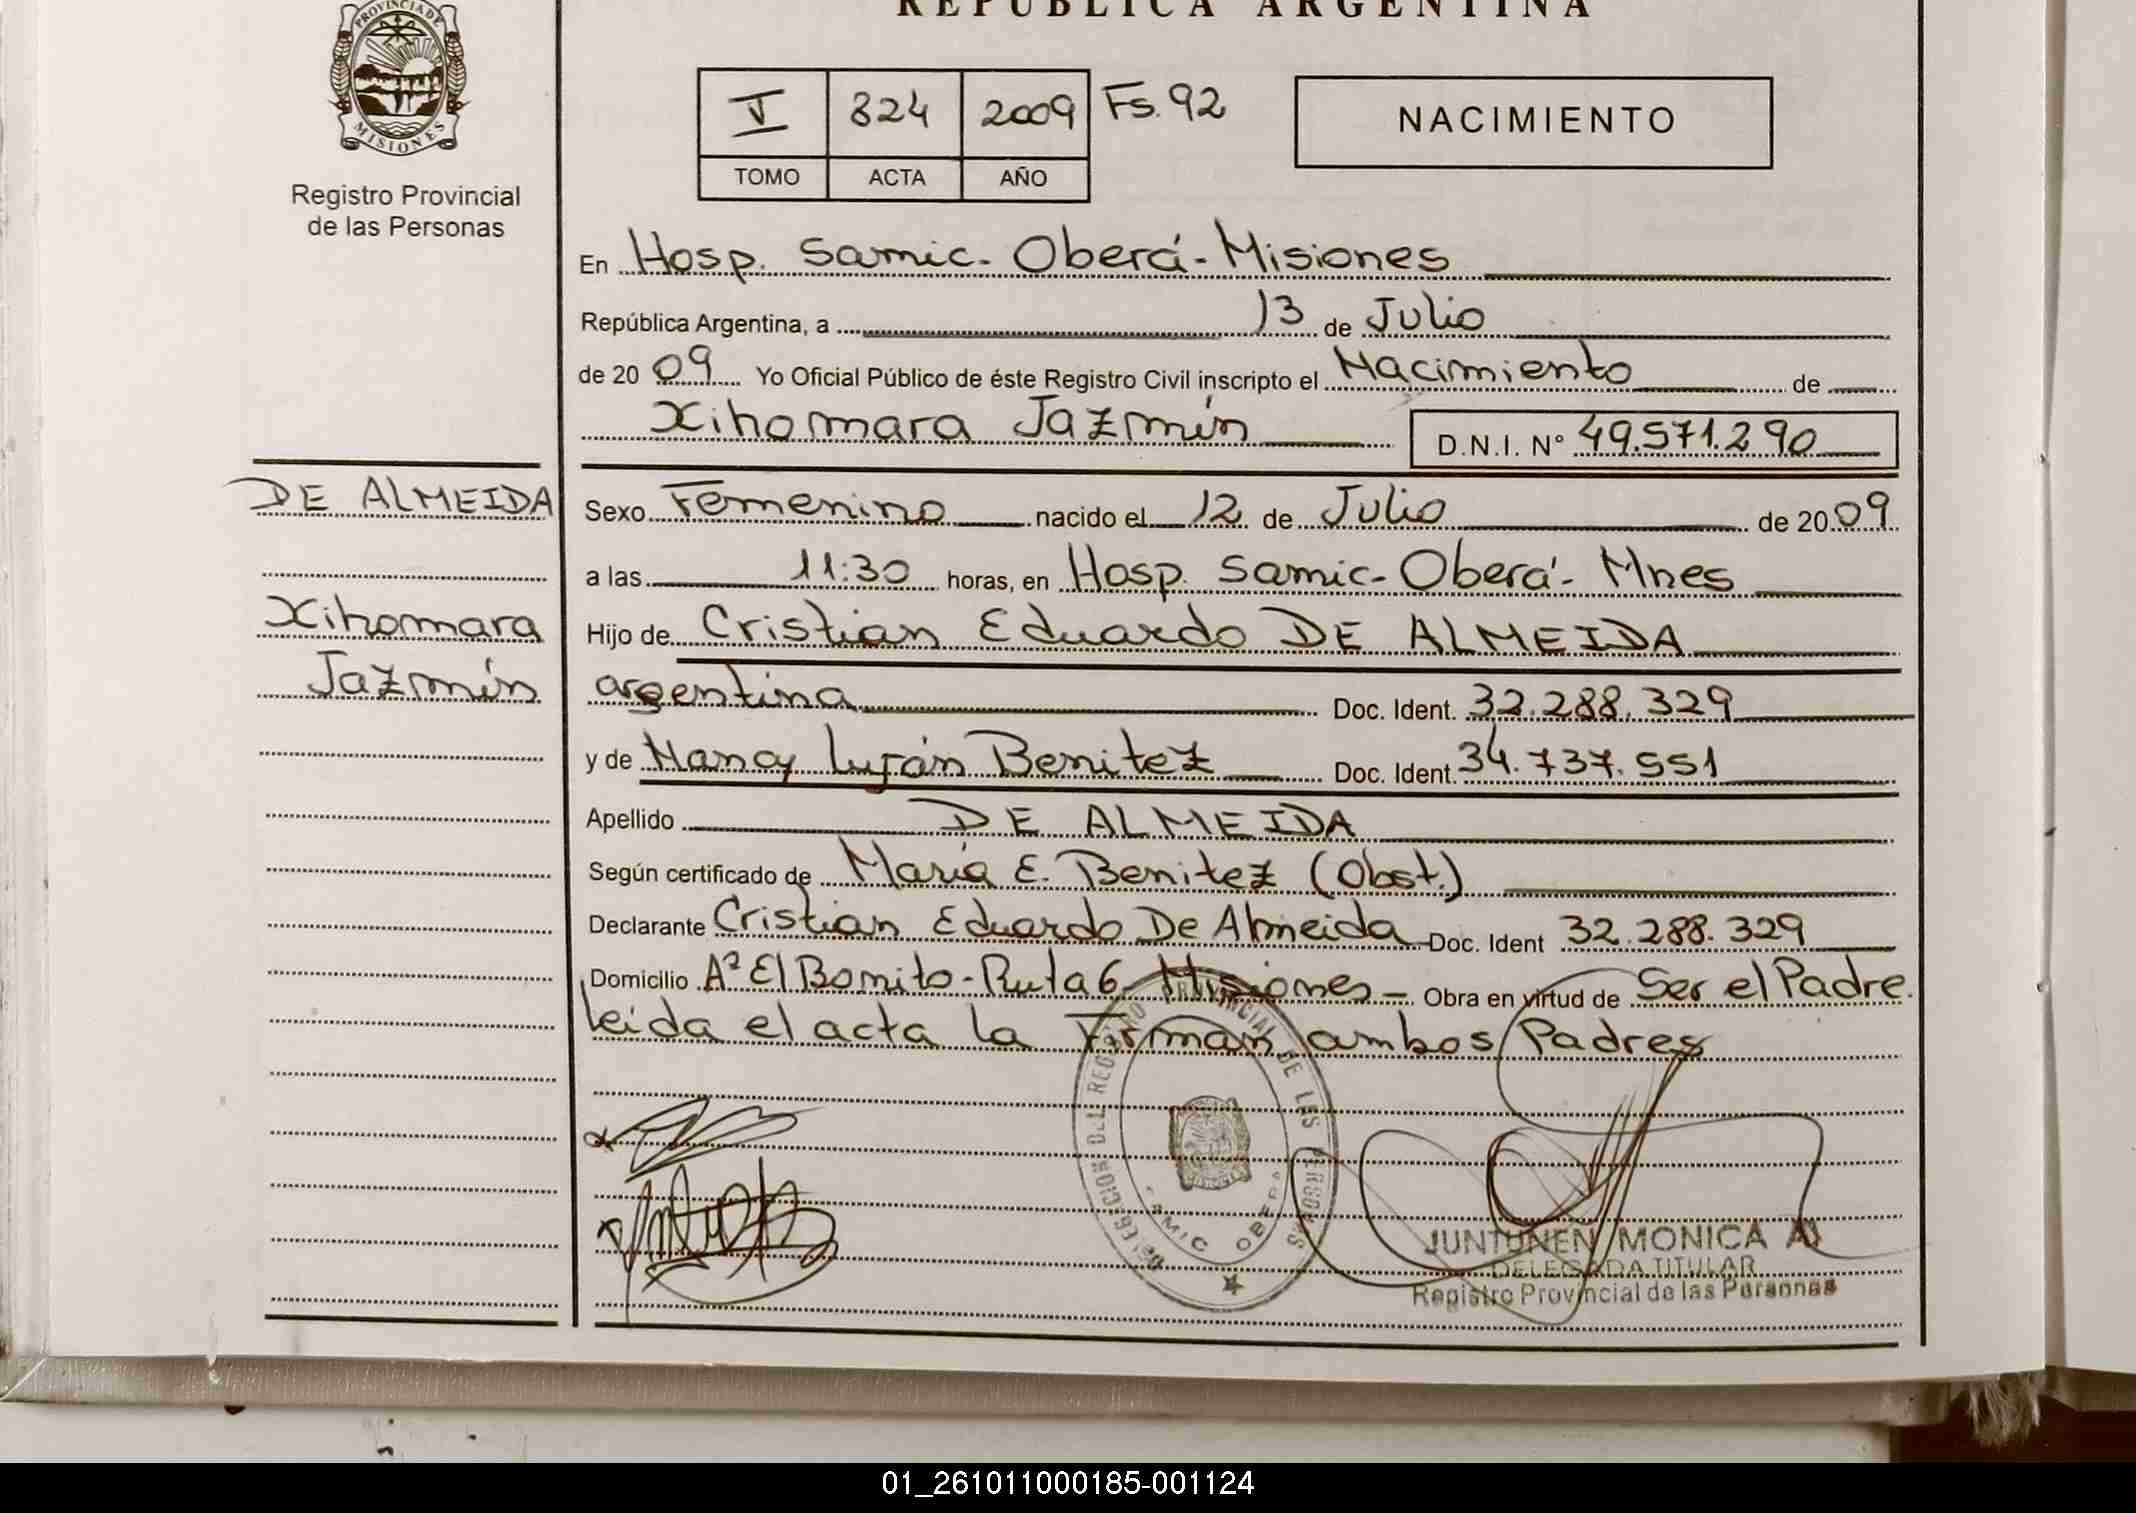 REPUBLICA ARGENTINA
PROVINCIA DE
MISIONES
Registro Provincial
de las Personas
I 824 2009 Fs. 92
TOMO ACTA AÑO
NACIMIENTO
En Hosp. Samic - Oberá - Misiones
República Argentina, a 13 de Julio
de 2009 Yo Oficial Público de éste Registro Civil inscripto el Nacimiento de
Xihomara Jazmín D.N.I. Nº 49.571.290
DE ALMEIDA
Xihomara
Jazmín
Sexo Femenino nacido el 12 de Julio de 2009
a las 11:30 horas, en Hosp. Samic - Oberá - Mnes
Hijo de Cristian Eduardo DE ALMEIDA
argentina Doc. Ident. 32.288.329
y de Nancy Luján Benitez Doc. Ident. 34.737.551
Apellido DE ALMEIDA
Según certificado de María E. Benitez (Obst.)
Declarante Cristian Eduardo De Almeida Doc. Ident 32.288.329
Domicilio Aº El Bonito - Ruta 6 - Misiones - Obra en virtud de Ser el Padre.
leida el acta la Firman ambos Padres
DELEGACION DEL REGISTRO PROVINCIAL DE LAS PERSONAS
SAMIC OBERA
JUNTUNEN MONICA A
DELEGADA TITULAR
Registro Provincial de las Personas
01_261011000185-001124